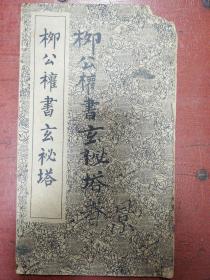 柳公權書玄祕塔
柳公權書玄祕塔